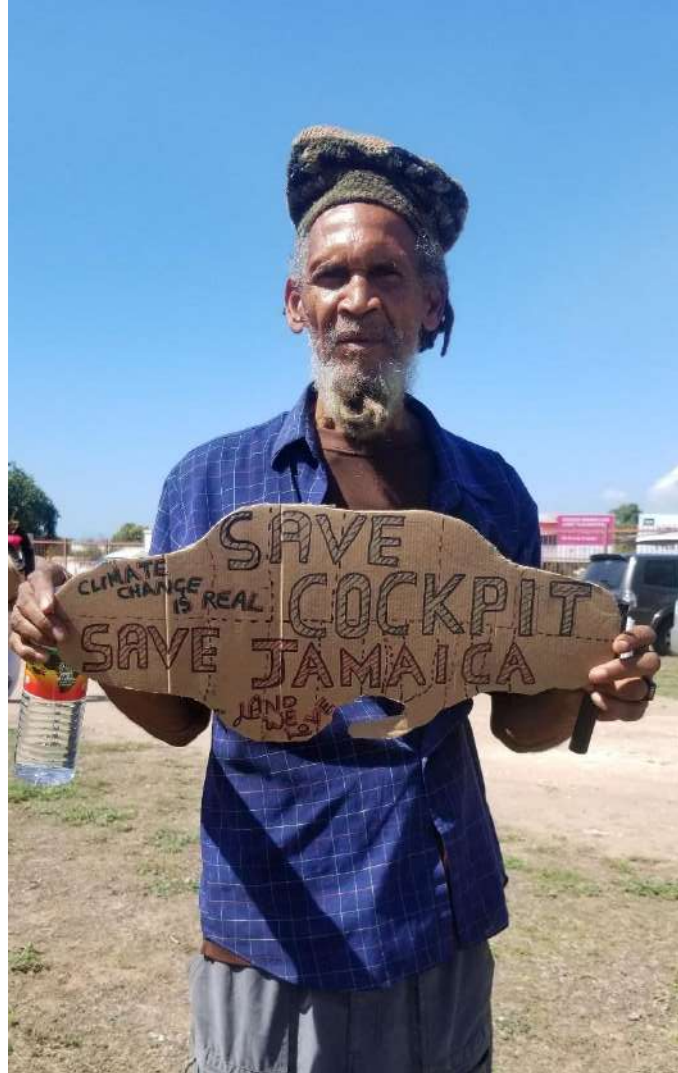 SAVE
COCKPIT
CLIMATE
CHANGE
IS REAL
SAVE JAMAICA
LAND
WE